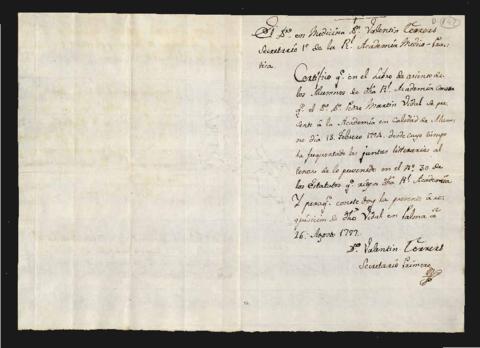 El Dr. en Medicina Dn. Valentin Terrers
Secretario 1º de la Rl. Academia Medico-Prac-
tica.
Certifico qe. en el Libro de asiento de
los Alumnos de dha Rl. Academia consta
qe. el Dr. Dn. Pedro Martin Vidal se pre-
sentó à la Academia en calidad de Alum-
no dia 18. Febrero 1794. desde cuyo tiempo
ha frequentado las juntas literarias al
tenor de lo prevenido en el Nº 30 de
los Estatutos qe. rigen dha Rl. Academia
Y paraqe. conste doy la presente à re-
quisicion de dho Vidal en Palma à
26. Agosto 1797.
Dr. Valentin Terrers
Secretario Primero